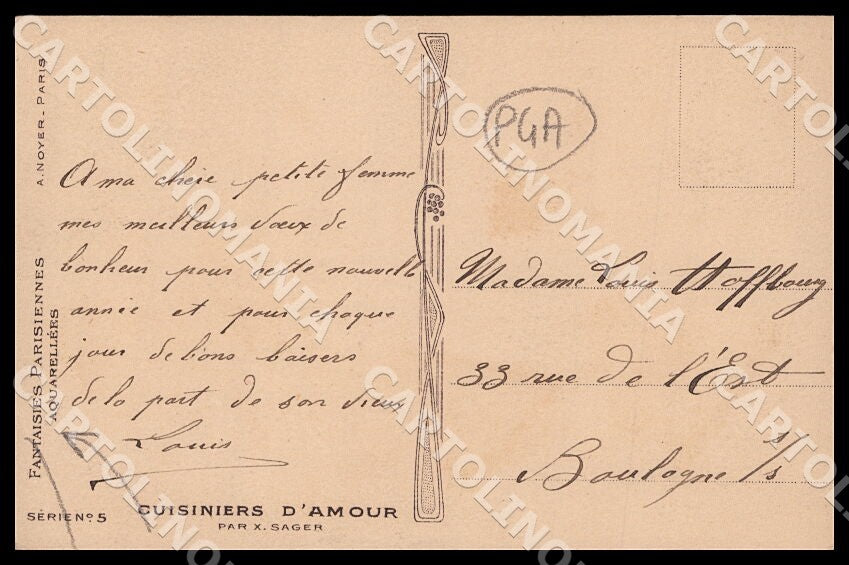 A. NOYER - PARIS
FANTAISIES PARISIENNES
AQUARELLÉES
A ma chère petite femme
mes meilleurs vœux de
bonheur pour cette nouvelle
année et pour chaque
jour de bons baisers
de la part de son vieux
Louis
SÉRIE Nº 5
CUISINIERS D'AMOUR
PAR X. SAGER
PGA
Madame Louis Hoffbourg
33 rue de l'Est
Boulogne s/s
CARTOLINOMANIA